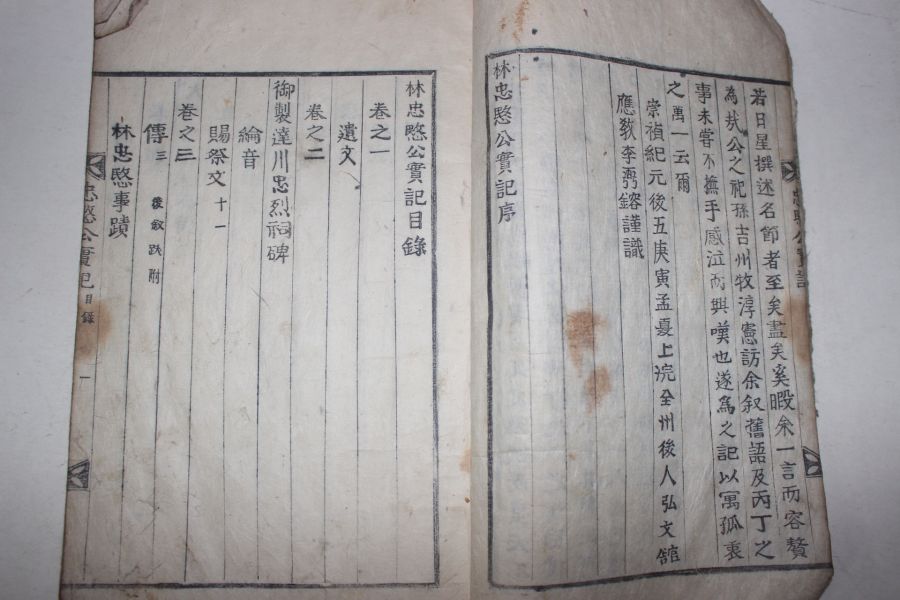 若日星撰述名節者至矣盡矣奚暇余一言而容贅
為哉公之祀孫吉州牧淳憲訪余叙舊語及丙丁之
事未嘗不撫手感泣而興嘆也遂為之記以寓孤衷
之萬一云爾
崇禎紀元後五庚寅孟夏上浣全州後人弘文舘
應敎李 鎔謹識
林忠愍公實記序
林忠愍公實記目錄
卷之一
遺文
卷之二
御製達川忠烈祠碑
綸音
賜祭文十一
卷之三
傳三 後敘跋附
林忠愍事蹟
忠愍公實記 目錄 一